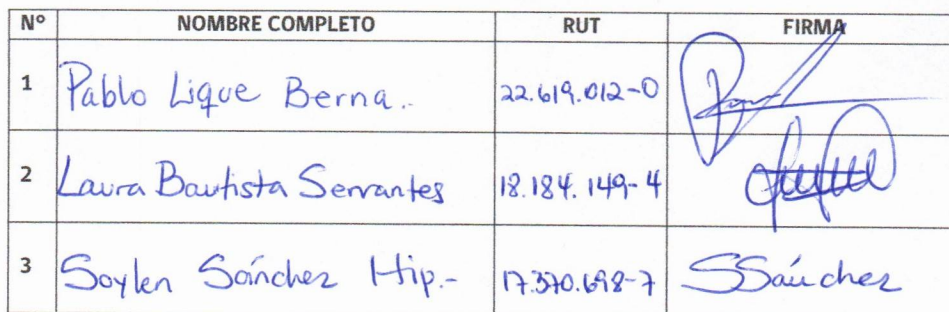 N° NOMBRE COMPLETO RUT FIRMA
1 Pablo Lique Berna.- 22.619.012-0
2 Laura Bautista Servantes 18.184.149-4
3 Soylen Sánchez Hip.- 17.370.698-7 SSánchez